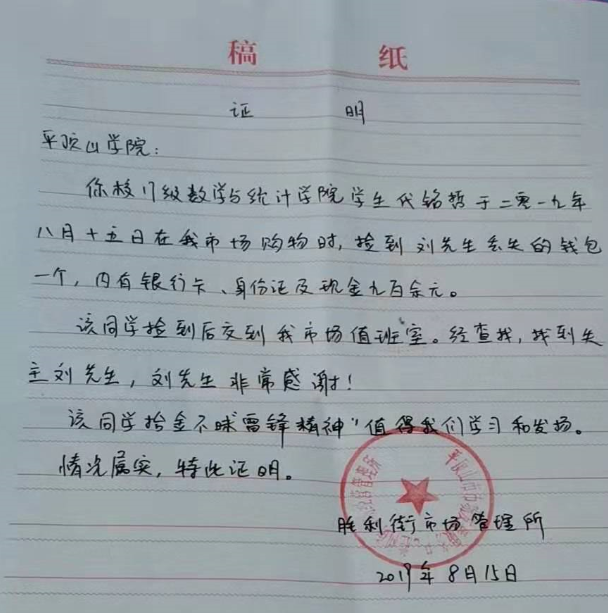 稿 纸
证 明
平顶山学院：
你校17级数学与统计学院学生代铭哲于二零一九年
八月十五日在我市场购物时，捡到刘先生丢失的钱包
一个，内有银行卡、身份证及现金九百余元。
该同学捡到后交到我市场值班室。经查找，找到失
主刘先生，刘先生非常感谢！
该同学拾金不昧"雷锋精神"值得我们学习和发扬。
情况属实，特此证明。
胜利街市场管理所
2019年8月15日